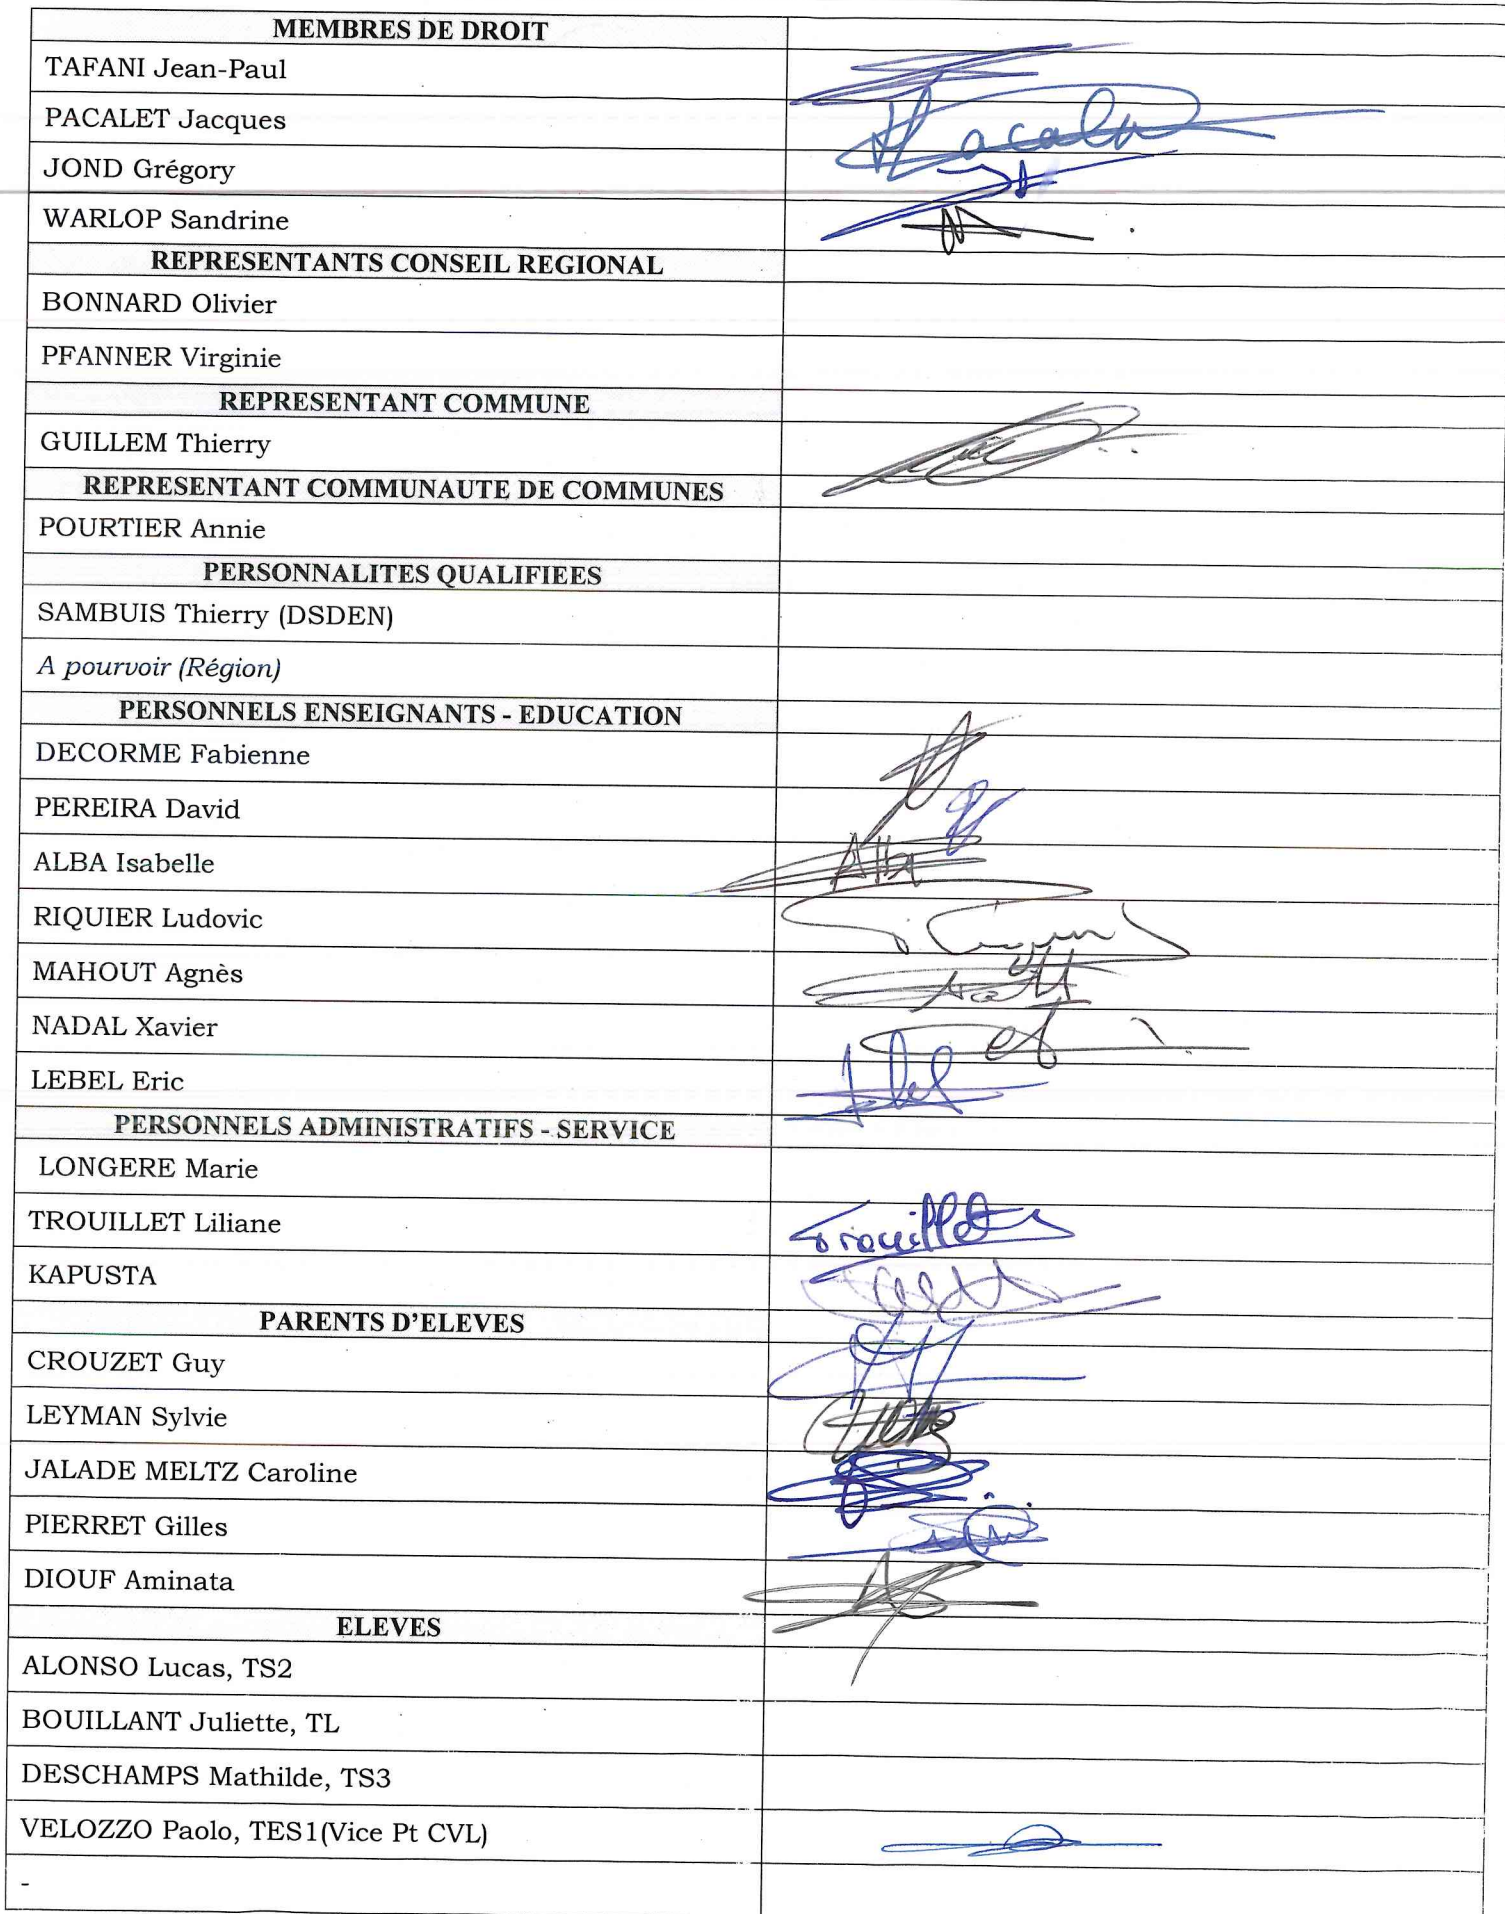 MEMBRES DE DROIT
TAFANI Jean-Paul
PACALET Jacques
JOND Grégory
WARLOP Sandrine
REPRESENTANTS CONSEIL REGIONAL
BONNARD Olivier
PFANNER Virginie
REPRESENTANT COMMUNE
GUILLEM Thierry
REPRESENTANT COMMUNAUTE DE COMMUNES
POURTIER Annie
PERSONNALITES QUALIFIEES
SAMBUIS Thierry (DSDEN)
A pourvoir (Région)
PERSONNELS ENSEIGNANTS - EDUCATION
DECORME Fabienne
PEREIRA David
ALBA Isabelle Alba
RIQUIER Ludovic
MAHOUT Agnès
NADAL Xavier
LEBEL Eric
PERSONNELS ADMINISTRATIFS - SERVICE
LONGERE Marie
TROUILLET Liliane Trouillet
KAPUSTA
PARENTS D'ELEVES
CROUZET Guy
LEYMAN Sylvie
JALADE MELTZ Caroline
PIERRET Gilles
DIOUF Aminata
ELEVES
ALONSO Lucas, TS2
BOUILLANT Juliette, TL
DESCHAMPS Mathilde, TS3
VELOZZO Paolo, TES1(Vice Pt CVL)
-